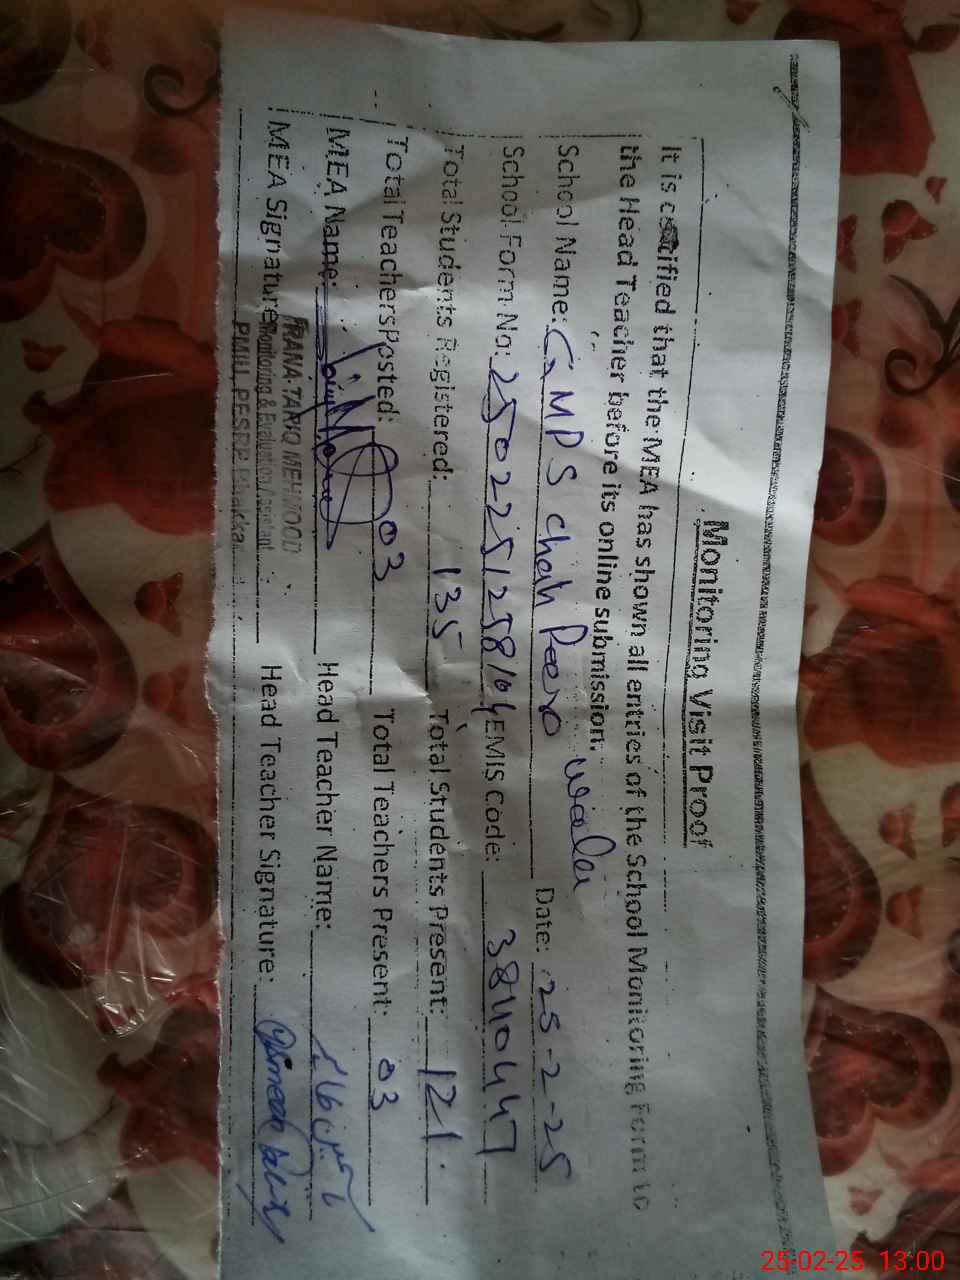 Monitoring Visit Proof
It is certified that the MEA has shown all entries of the School Monitoring Form to
the Head Teacher before its online submission.
School Name: GMPS chah Peero wala Date: 25-2-25
School Form No: 2502251258104 EMIS Code: 38410447
Total Students Registered: 135 Total Students Present: 121
Total Teachers Posted: 03 Total Teachers Present: 03
MEA Name: Head Teacher Name:
MEA Signature: Head Teacher Signature:
RANA TARIQ MEHMOOD
Monitoring & Evaluation Assistant
PMIU, PESRP Bhakkar
25-02-25 13:00